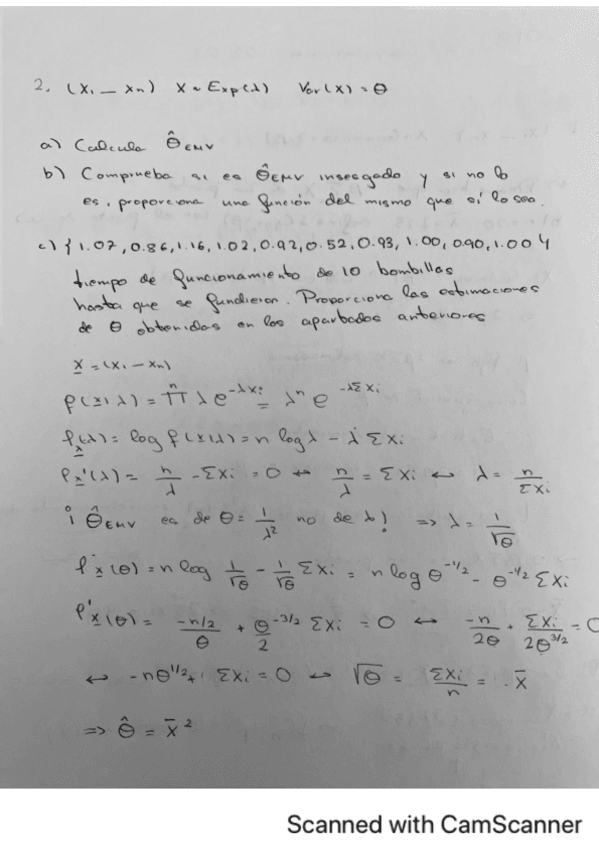 2. (X₁ — Xn) X ~ Exp(λ) Var(X) = θ
a) Calcula θ̂EMV
b) Comprueba si es θ̂EMV insesgado y si no lo
es, proporciona una función del mismo que sí lo sea.
c) {1.07, 0.86, 1.16, 1.02, 0.92, 0.52, 0.93, 1.00, 0.90, 1.00}
tiempo de funcionamiento de 10 bombillas
hasta que se fundieron. Proporciona las estimaciones
de θ obtenidas en los apartados anteriores
X = (X₁ — Xn)
f(x|λ) = ∏ⁿ λ e^{-λxi} = λⁿ e^{-λΣxi}
ℓx(λ) = log f(x|λ) = n log λ - λ Σxi
ℓx'(λ) = n/λ - Σxi = 0 ↔ n/λ = Σxi ↔ λ = n/Σxi
¡ θ̂EMV es de θ = 1/λ² no de λ! ⇒ λ = 1/√θ
ℓx(θ) = n log 1/√θ - 1/√θ Σxi = n log θ^{-1/2} - θ^{-1/2} Σxi
ℓ'x(θ) = -n/2/θ + θ^{-3/2}/2 Σxi = 0 ↔ -n/2θ + Σxi/2θ^{3/2} = 0
↔ -nθ^{1/2} + Σxi = 0 ↔ √θ = Σxi/n = x̄
⇒ θ̂ = x̄²
Scanned with CamScanner